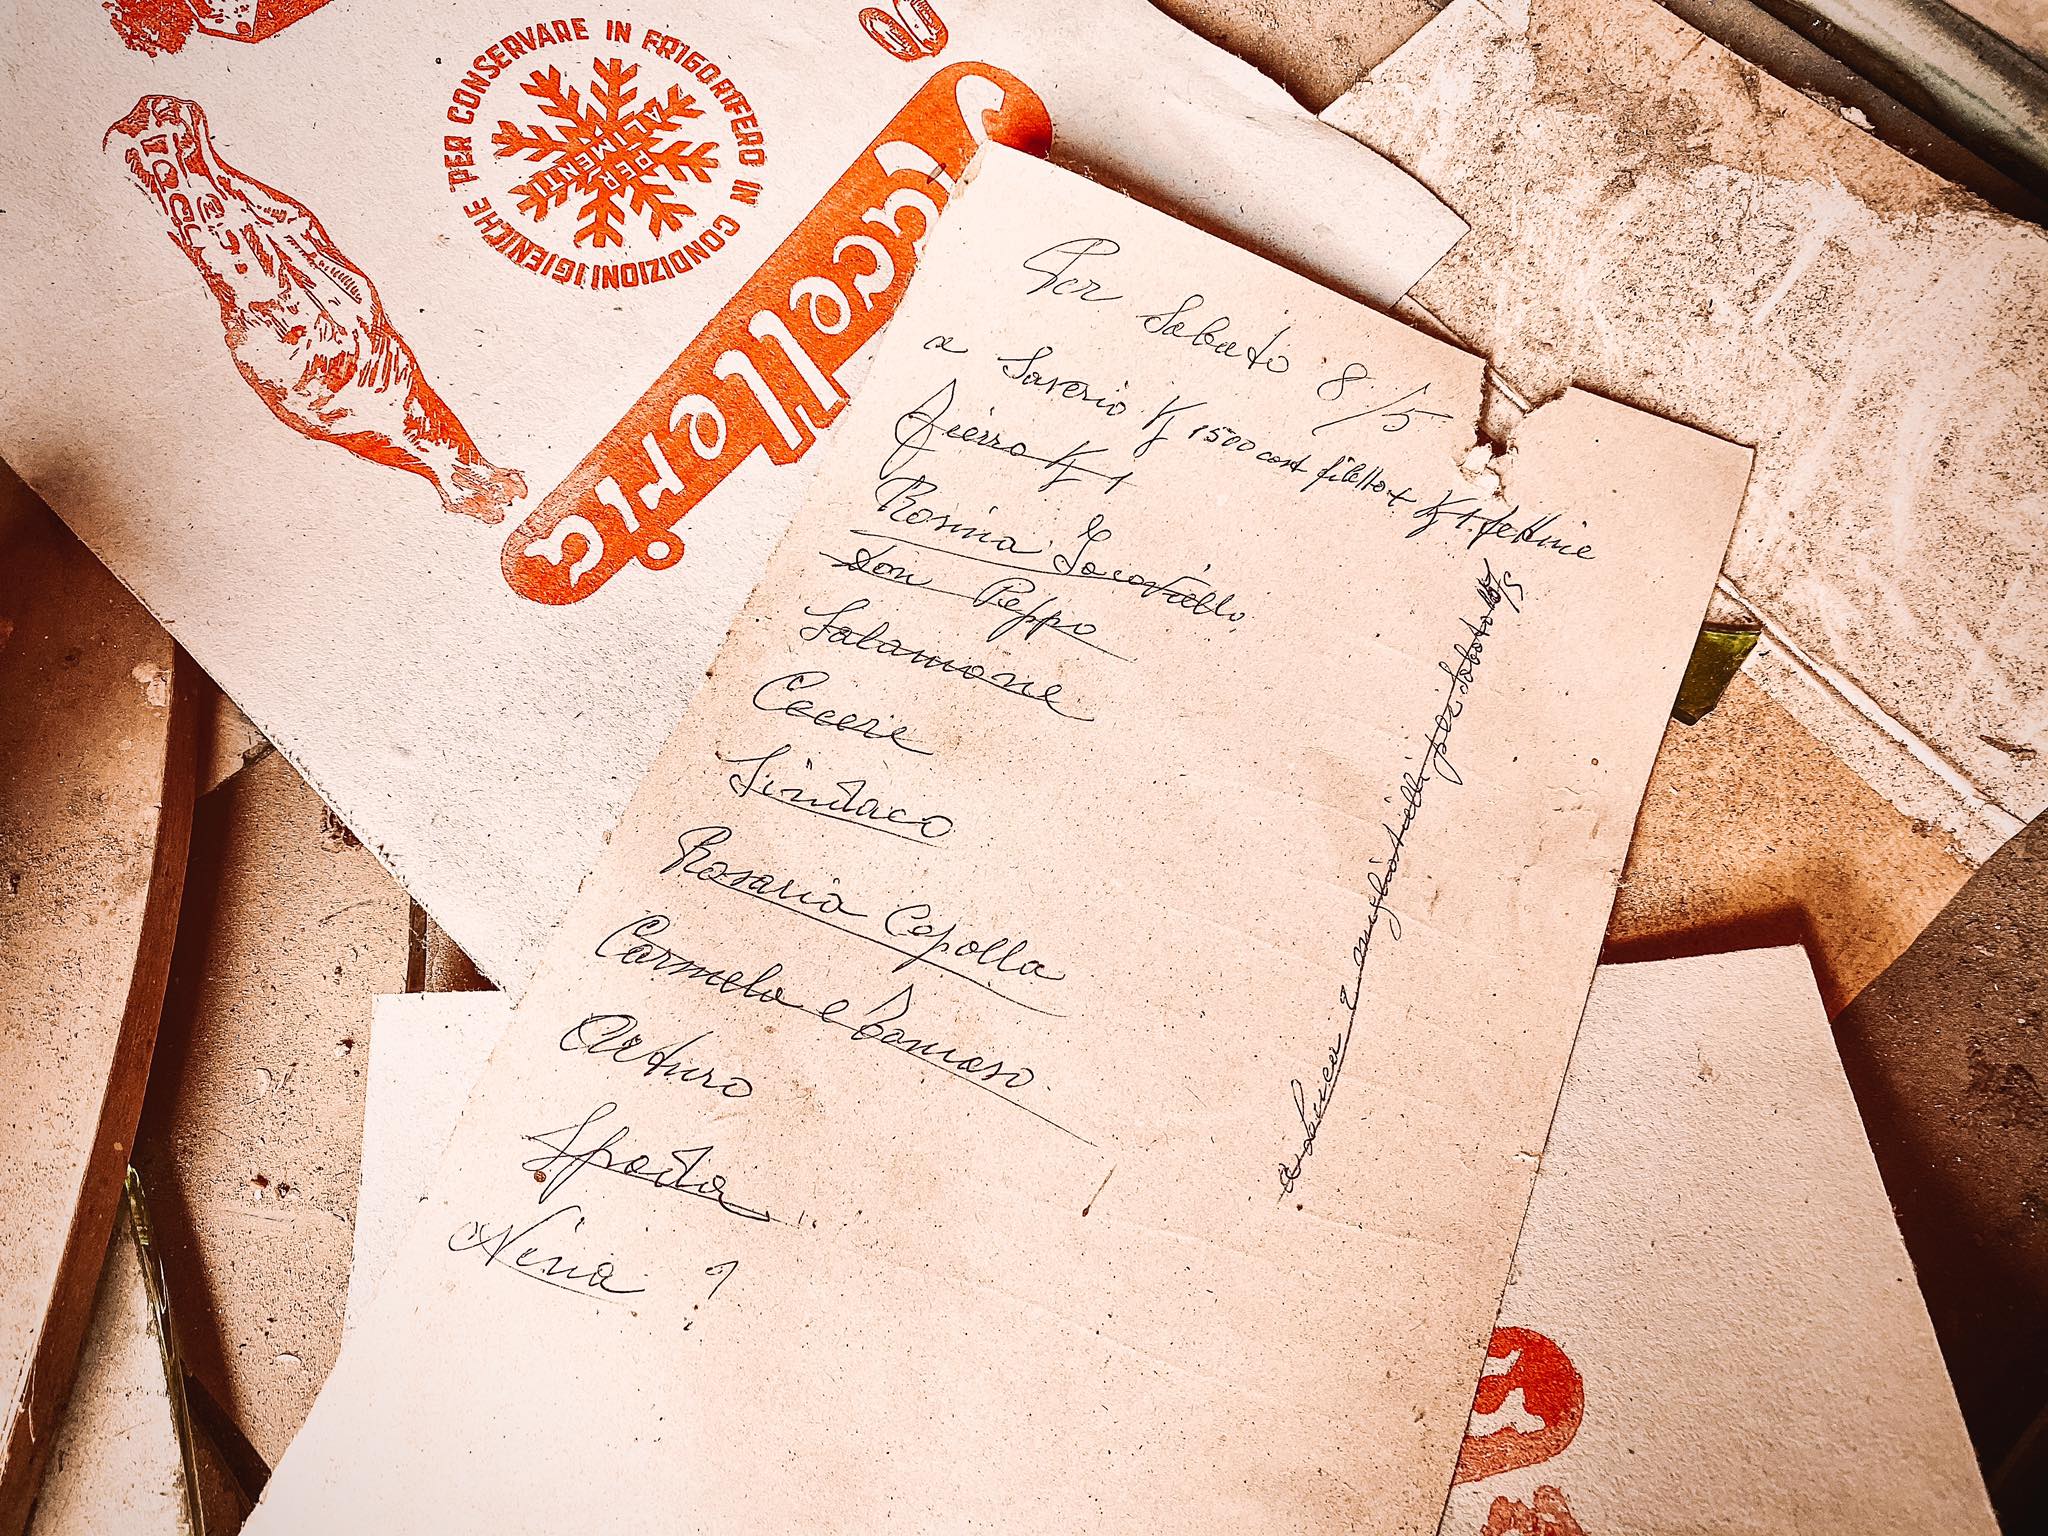 PER CONSERVARE IN FRIGORIFERO IN CONDIZIONI IGIENICHE
PER
ALIMENTI
Macelleria
Per Sabato 8/5
a Saverio Kg 1500 cost filetto + Kg 1. fettine
Fierro Kg 1
Rosina
Don Peppo
Salamone
Cacere
Sindaco
Rosaria Copolla
Carmela e Tomaso.
Arturo
Spada
Nina ?
2 per Sabato 8/5